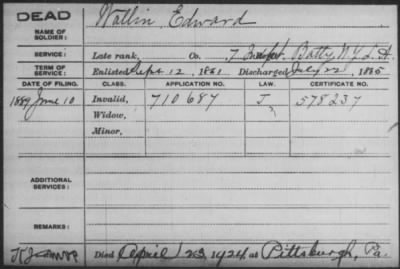 DEAD
Wallin, Edward
NAME OF SOLDIER:
SERVICE: Late rank, Co. 7 Batty N.Y. L.A.
TERM OF SERVICE: Enlisted Sept. 12, 1861 Discharged July 22, 1865
DATE OF FILING. CLASS. APPLICATION NO. LAW. CERTIFICATE NO.
1889 June 10 Invalid, 710687 J 578237
Widow,
Minor,
ADDITIONAL SERVICES:
REMARKS:
Died April 23, 1924, at Pittsburgh, Pa.